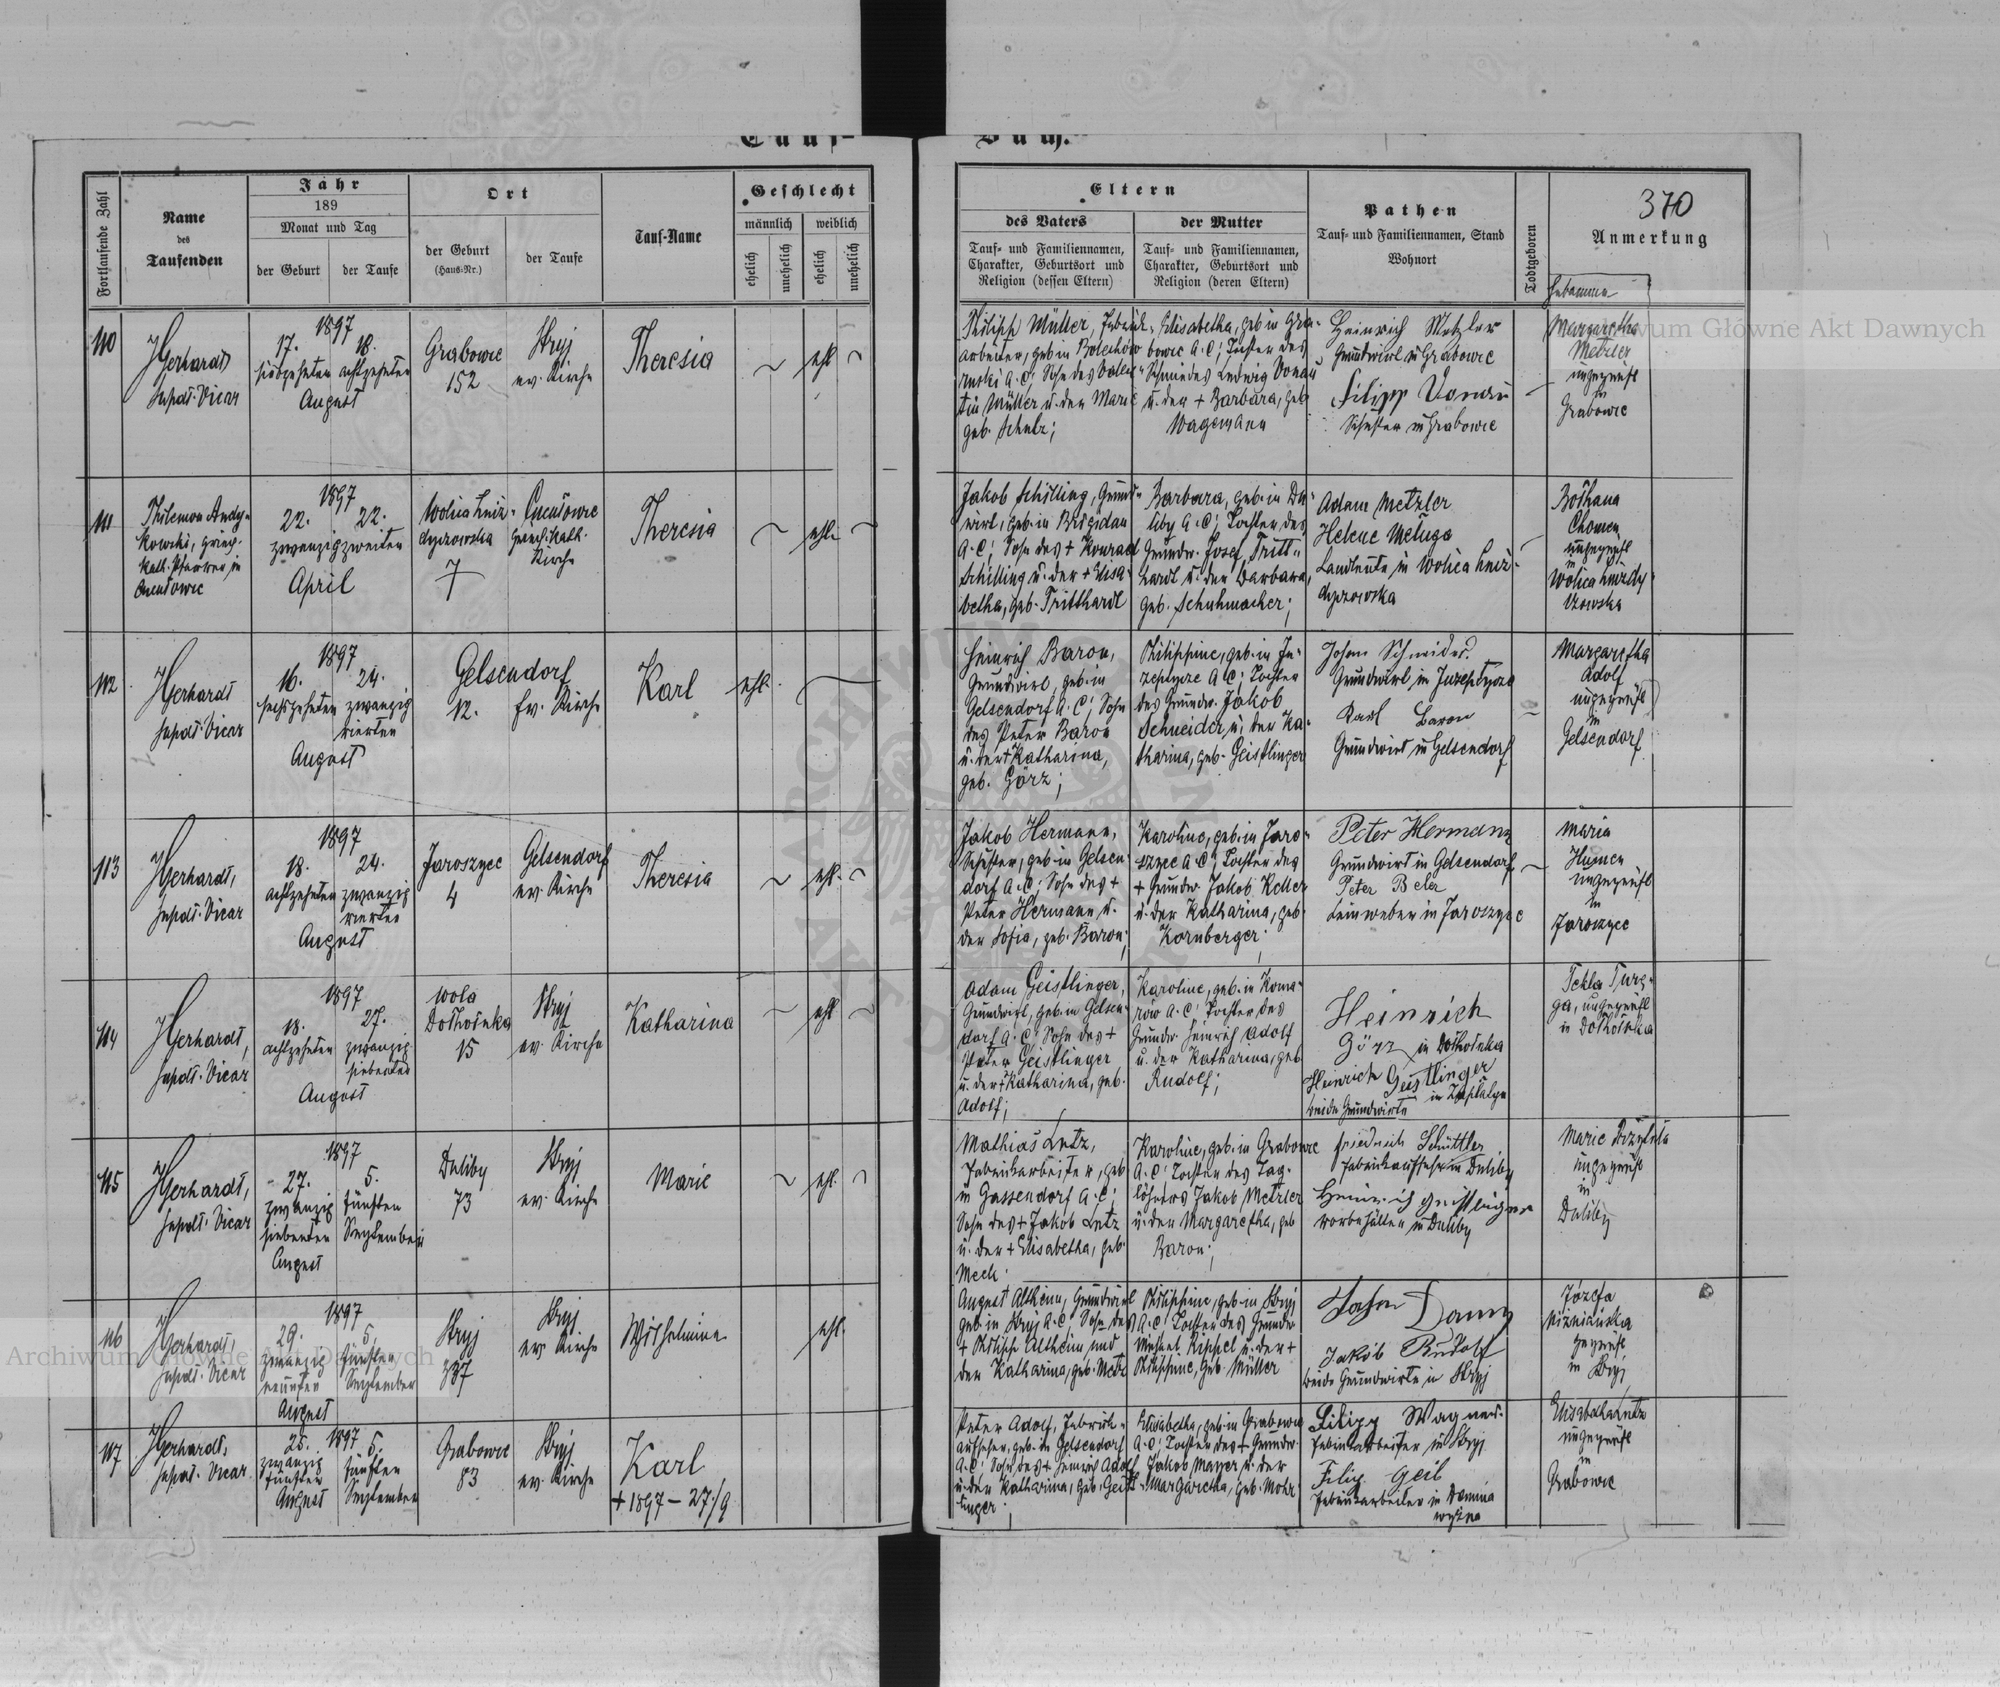 Tauf-
Buch.
Fortlaufende Zahl
Name
des
Taufenden
Jahr
189
Monat und Tag
der Geburt
der Taufe
Ort
der Geburt
(Haus-Nr.)
der Taufe
Tauf-Name
Geschlecht
männlich
weiblich
ehelich
unehelich
ehelich
unehelich
Eltern
des Vaters
Tauf- und Familiennamen,
Charakter, Geburtsort und
Religion (dessen Eltern)
der Mutter
Tauf- und Familiennamen,
Charakter, Geburtsort und
Religion (deren Eltern)
Pathen
Tauf- und Familiennamen, Stand
Wohnort
Todtgeboren
370
Anmerkung
Hebamme
110
Gerhardt
Supdt. Vicar
1897
17. 18.
siebzehnten achtzehnten
August
Grabowic
152
Stryj
ev. Kirche
Theresia
ehl.
Philipp Müller, Fabrik-
arbeiter, geb. in Bolechów
ruski A.C; Sohn des Valen-
tin Müller u. der Marie
geb. Schulz;
Elisabetha, geb. in Gra-
bowic A.C; Tochter des
Schmiedes Ludwig Vonau
u. der + Barbara, geb.
Wagemann
Heinrich Metzler
Grundwirt in Grabowic
Filipp Vonau
Schuster in Grabowic
Margaretha
Metzler
ungeprüft
in
Grabowic
111
Philemon Andy-
kowski, griech.
kath. Pfarrer in
1897
22. 22.
zwanzig zweiten
April
Wolica hniz-
dyczowska
7
griech. kath.
Kirche
Theresia
ehl.
Jakob Schilling, Grund-
wirt, geb. in Brigidau
A.C; Sohn des + Konrad
Schilling u. der + Elisa-
betha, geb. Tritthardt
Barbara, geb. in Du-
liby A.C; Tochter des
Grundw. Josef Tritt-
hardt u. der Barbara,
geb. Schuhmacher;
Adam Metzler
Helene Meluga
Landleute in Wolica hniz-
dyczowska
Chomen
ungeprüft
in
Wolica hnizdy-
czowska
112
Gerhardt
Supdt. Vicar
1897
16. 24.
sechszehnten zwanzig
vierten
August
Gelsendorf
12. Ev. Kirche
Karl
ehl.
Heinrich Baron,
Grundwirt, geb. in
Gelsendorf A.C; Sohn
des Peter Baron
u. der + Katharina,
geb. Görz;
Philippine, geb. in Ju-
zeptycze A.C; Tochter
des Grundw. Jakob
Schneider u. der Ka-
tharina, geb. Geistlinger
Johan Schneider
Grundwirt in Juzeptycze
Karl Baron
Grundwirt in Gelsendorf
Margaretha
Adolf
ungeprüft
in
Gelsendorf
113
Gerhardt,
Supdt. Vicar
1897
18. 24.
achtzehnten zwanzig
vierten
August
Jaroszyce
4
Gelsendorf
ev. Kirche
Theresia
ehl.
Jakob Hermann,
Schuster, geb. in Gelsen-
dorf A.C; Sohn des +
Peter Hermann u.
der Sofia, geb. Baron;
Karoline, geb. in Jaro-
szyce A.C; Tochter des
+ Grundw. Jakob Keller
u. der Katharina, geb.
Kornberger;
Peter Hermann
Grundwirt in Gelsendorf
Peter Beler
Leinweber in Jaroszyce
Maria
ungeprüft
in
Jaroszyce
114
Gerhardt,
Supdt. Vicar
1897
18. 27.
achtzehnten zwanzig
siebenten
August
Wola
Dołhołuka
15
Stryj
ev. Kirche
Katharina
ehl.
Adam Geistlinger,
Grundwirt, geb. in Gelsen-
dorf A.C; Sohn des +
Peter Geistlinger
u. der + Katharina, geb.
Adolf;
Karoline, geb. in Koma-
rów A.C; Tochter des
Grundw. Heinrich Adolf
u. der Katharina, geb.
Rudolf;
Heinrich
Görz in Dołhołuka
Heinrich Geistlinger
beide Grundwirte in
Tekla
ungeprüft
in Dołhołuka
115
Gerhardt,
Supdt. Vicar
1897
27. 5.
zwanzig fünften
siebenten September
August
Duliby
73
Stryj
ev. Kirche
Marie
ehl.
Mathias Letz,
Fabrikarbeiter, geb.
in Gassendorf A.C;
Sohn des + Jakob Letz
u. der + Elisabetha, geb.
Meck.
Karoline, geb. in Grabowic
A.C; Tochter des Tag-
löhners Jakob Metzler
u. der Margaretha, geb.
Baron;
Friedrich Schüttler
Fabrikaufseher in Duliby
Heinrich Geistlinger
in Duliby
Marie
ungeprüft
in
Duliby
116
Gerhardt,
Supdt. Vicar
1897
29. 5.
zwanzig fünften
neunten September
August
Stryj
337
Stryj
ev. Kirche
Wilhelmine
ehl.
August Altheim, Grundwirt
geb. in Stryj A.C, Sohn des
+ Philipp Altheim und
der Katharina, geb. Metz
Philippine, geb. in Stryj
A.C; Tochter des Grundw.
Michael Rippel u. der +
Philippine, geb. Müller
Jakob Rudolf
beide Grundwirte in Stryj
Józefa
geprüft
in Stryj
117
Gerhardt,
Supdt. Vicar
1897
25. 5.
zwanzig fünften
fünften September
August
Grabowic
83
Stryj
ev. Kirche
Karl
+ 1897 – 27/9
Peter Adolf, Fabrik-
aufseher, geb. in Gelsendorf
A.C; Sohn des + Heinrich Adolf
u. der Katharina, geb. Geist-
linger.
Elisabetha, geb. in Grabowic
A.C; Tochter des + Grundw.
Jakob Mayer u. der
Margaretha, geb. Mohr
Filipp Wagner
Fabrikarbeiter in Stryj
Filip Geib
Fabrikarbeiter in
Elisabetha Letz
ungeprüft
in
Grabowic
Archiwum Główne Akt Dawnych
Archiwum Główne Akt Dawnych